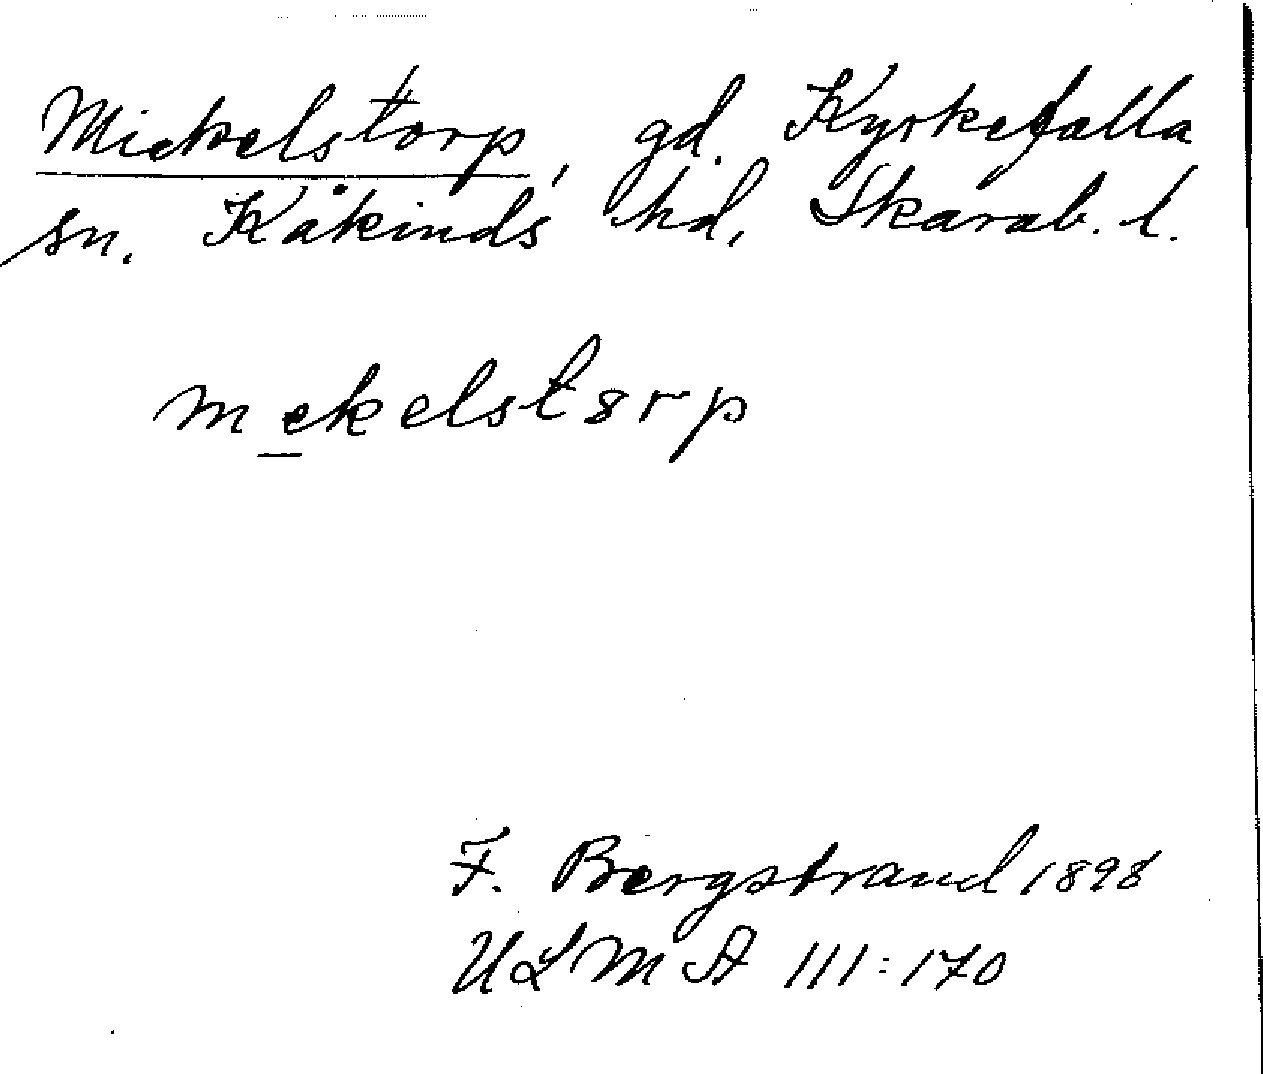 Mickelstorp, gd. Kyrkefalla
sn. Kåkinds hd, Skarab. l.
mekelstorp
F. Bergstrand 1898
ULMA 111:170